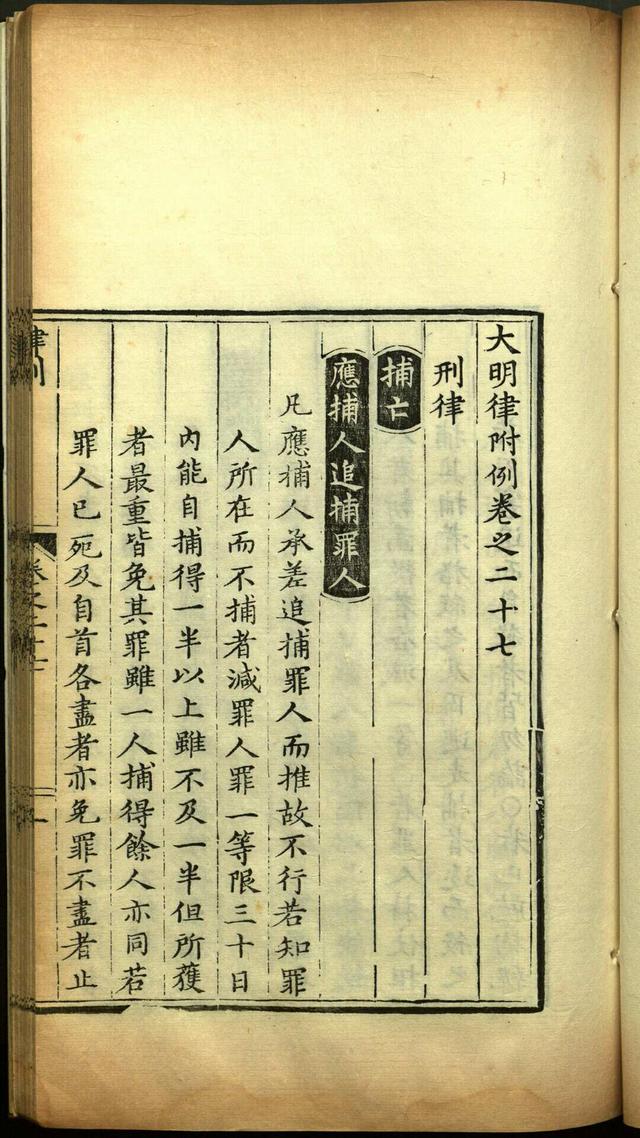 大明律附例卷之二十七
刑律
捕亡
應捕人追捕罪人
凡應捕人承差追捕罪人而推故不行若知罪
人所在而不捕者減罪人罪一等限三十日
內能自捕得一半以上雖不及一半但所獲
者最重皆免其罪雖一人捕得餘人亦同若
罪人已死及自首各盡者亦免罪不盡者止
卷之二十七
一